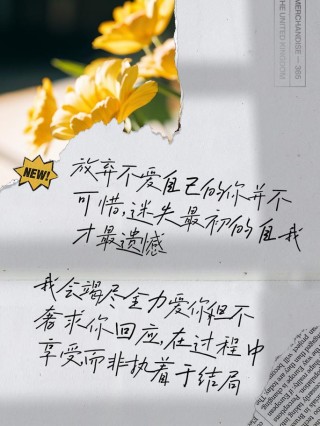 MERCHANDISE — 365
THE UNITED KINGDOM
NEW!
放弃不爱自己的你并不
可惜,迷失最初的自我
才最遗憾
我会竭尽全力爱你但不
奢求你回应,在过程中
享受,而非执着于结局